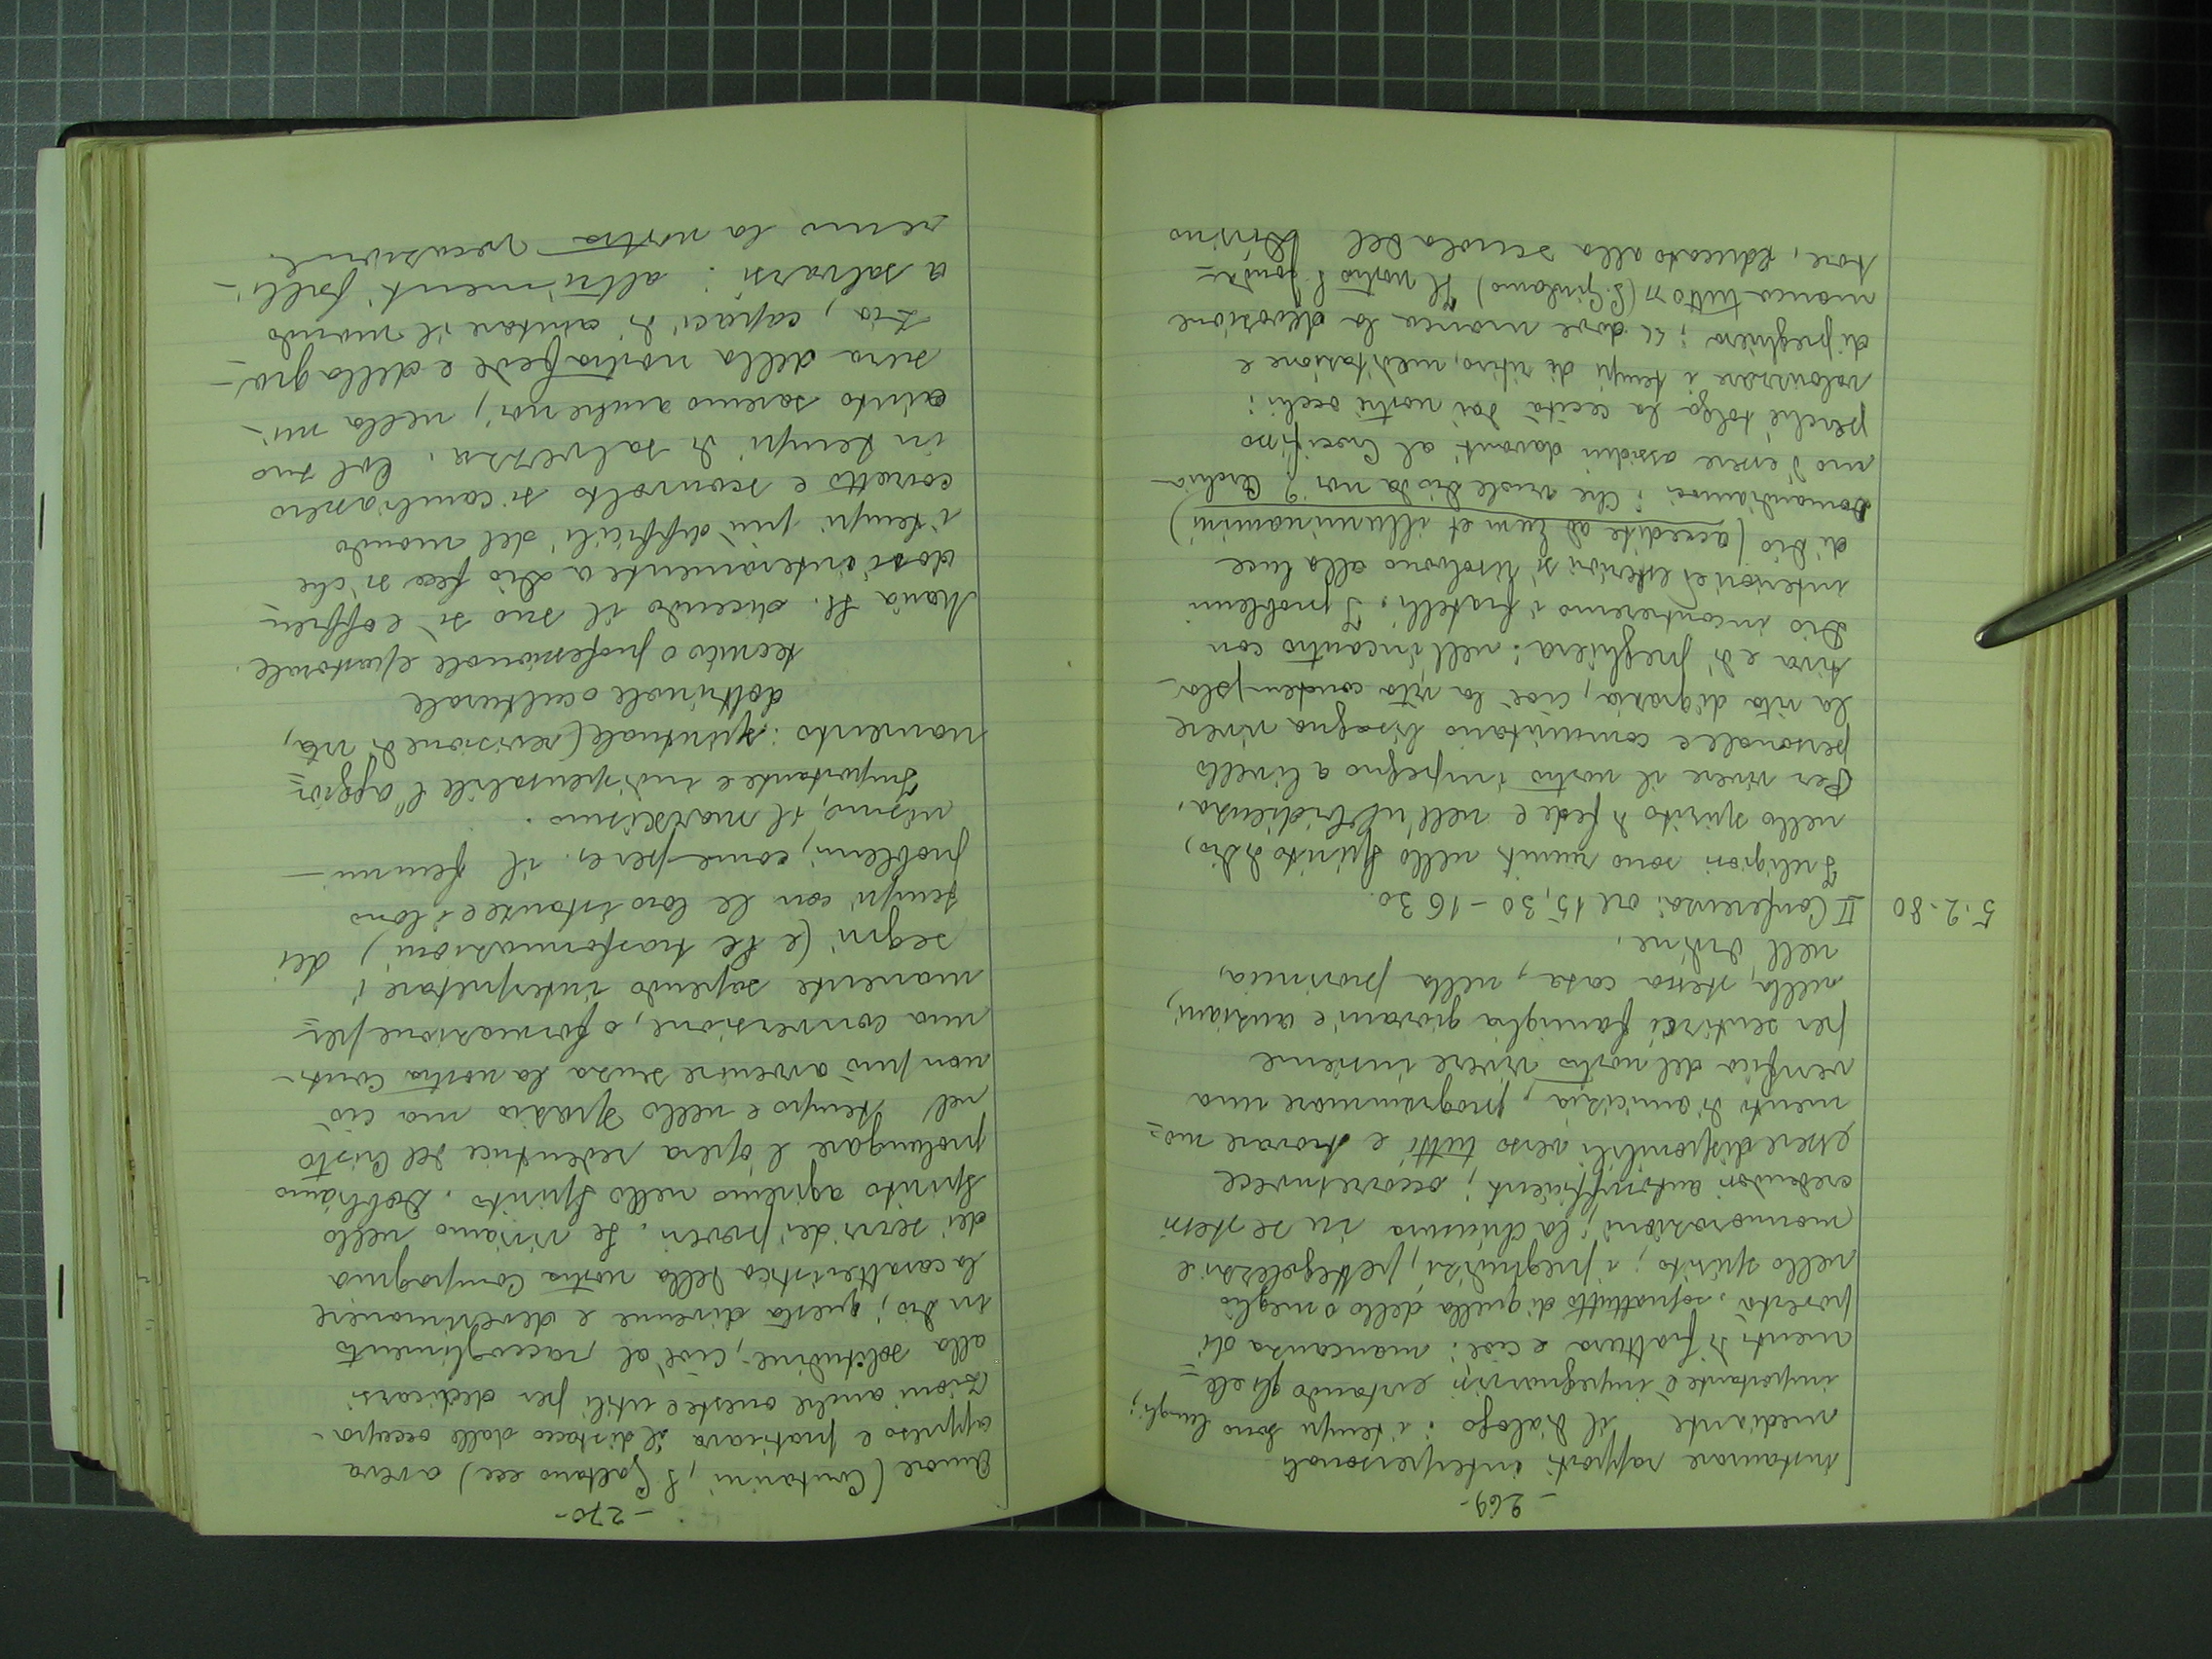 - 269 -
instaurare rapporti interpersonali
mediante il dialogo: i tempi sono lunghi;
importante è impegnarsi evitando gli ele=
menti di frattura e cioè: mancanza di
povertà, soprattutto di quella dello o meglio
nello spirito; i pregiudizi, pettegolezzi e
mormorazioni; la chiusura in se stessi
credendosi autosufficienti; occorre invece
essere disponibili verso tutti e trovare mo=
mento di amicizia, programmare una
verifica del nostro vivere insieme
per sentirci famiglia giovani e anziani,
nella stessa casa, nella provincia,
nell'Ordine.
5-2-80 II Conferenza: ore 15,30 - 16 30.
I religiosi sono riuniti nello Spirito di Dio,
nello spirito di fede e nell'ubbidienza.
Per vivere il nostro impegno a livello
personale e comunitario bisogna vivere
la vita di grazia, cioè la vita contempla-
tiva e di preghiera: nell'incontro con
Dio incontreremo i fratelli. I problemi
interiori ed esteriori si risolvono alla luce
di Dio (accedite ad Eum et illuminamini)
Domandiamoci: Che vuole Dio da noi?
mo d'essere assidui davanti al Crocifisso
perché tolga la cecità dai nostri occhi:
valorizzare i tempi di ritiro, meditazione e
di preghiera: "dove manca la devozione
manca tutto" (S. Girolamo) Il nostro S. Fonda=
tore, educato alla scuola del Divino
- 270 -
Amore (Contarini, S. Gaetano ecc) aveva
appreso e praticava il distacco dalle occupa-
zioni anche oneste e utili per dedicarsi
alla solitudine, cioè al raccoglimento
in Dio; questa divenne e deve rimanere
la caratteristica della nostra Compagnia
dei servi dei poveri. Se viviamo nello
Spirito agiremo nello Spirito. Dobbiamo
prolungare l'opera redentrice del Cristo
nel tempo e nello spazio ma ciò
non può avvenire senza la nostra conti-
nua conversione, o formazione per=
manente sapendo interpretare i
segni (e le trasformazioni) dei
tempi con le loro istanze e i loro
problemi, come per es. il femmi-
nismo, il marxismo.
Importante e indispensabile l'aggior=
namento: spirituale (revisione di vita,
dottrinale o culturale
tecnico o professionale e pastorale.
Maria SS. dicendo il suo sì e offren-
dosi interamente a Dio fece sì che
i tempi più difficili del mondo
corrotto e sconvolto si cambiassero
in tempi di salvezza. Col suo
aiuto saremo anche noi, nella mi-
sura della nostra fede e della gra-
zia, capaci di aiutare il mondo
a salvarsi: altrimenti falli-
remo la nostra vocazione.